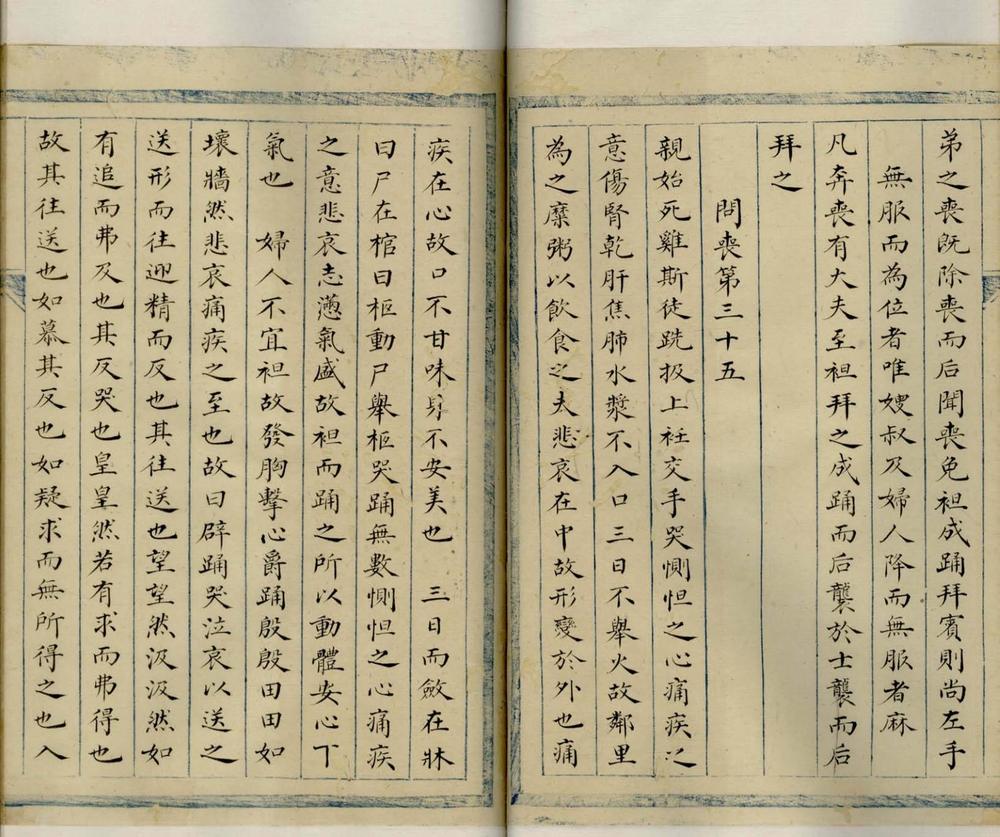 弟之喪既除喪而后聞喪免袒成踊拜賓則尚左手
無服而為位者唯嫂叔及婦人降而無服者麻
凡奔喪有大夫至袒拜之成踊而后襲於士襲而后
拜之
問喪第三十五
親始死雞斯徒跣扱上衽交手哭惻怛之心痛疾之
意傷腎乾肝焦肺水漿不入口三日不舉火故鄰里
為之糜粥以飲食之夫悲哀在中故形變於外也痛
疾在心故口不甘味身不安美也 三日而斂在牀
曰尸在棺曰柩動尸舉柩哭踊無數惻怛之心痛疾
之意悲哀志懣氣盛故袒而踊之所以動體安心下
氣也 婦人不宜袒故發胸擊心爵踊殷殷田田如
壞牆然悲哀痛疾之至也故曰辟踊哭泣哀以送之
送形而往迎精而反也其往送也望望然汲汲然如
有追而弗及也其反哭也皇皇然若有求而弗得也
故其往送也如慕其反也如疑求而無所得之也入